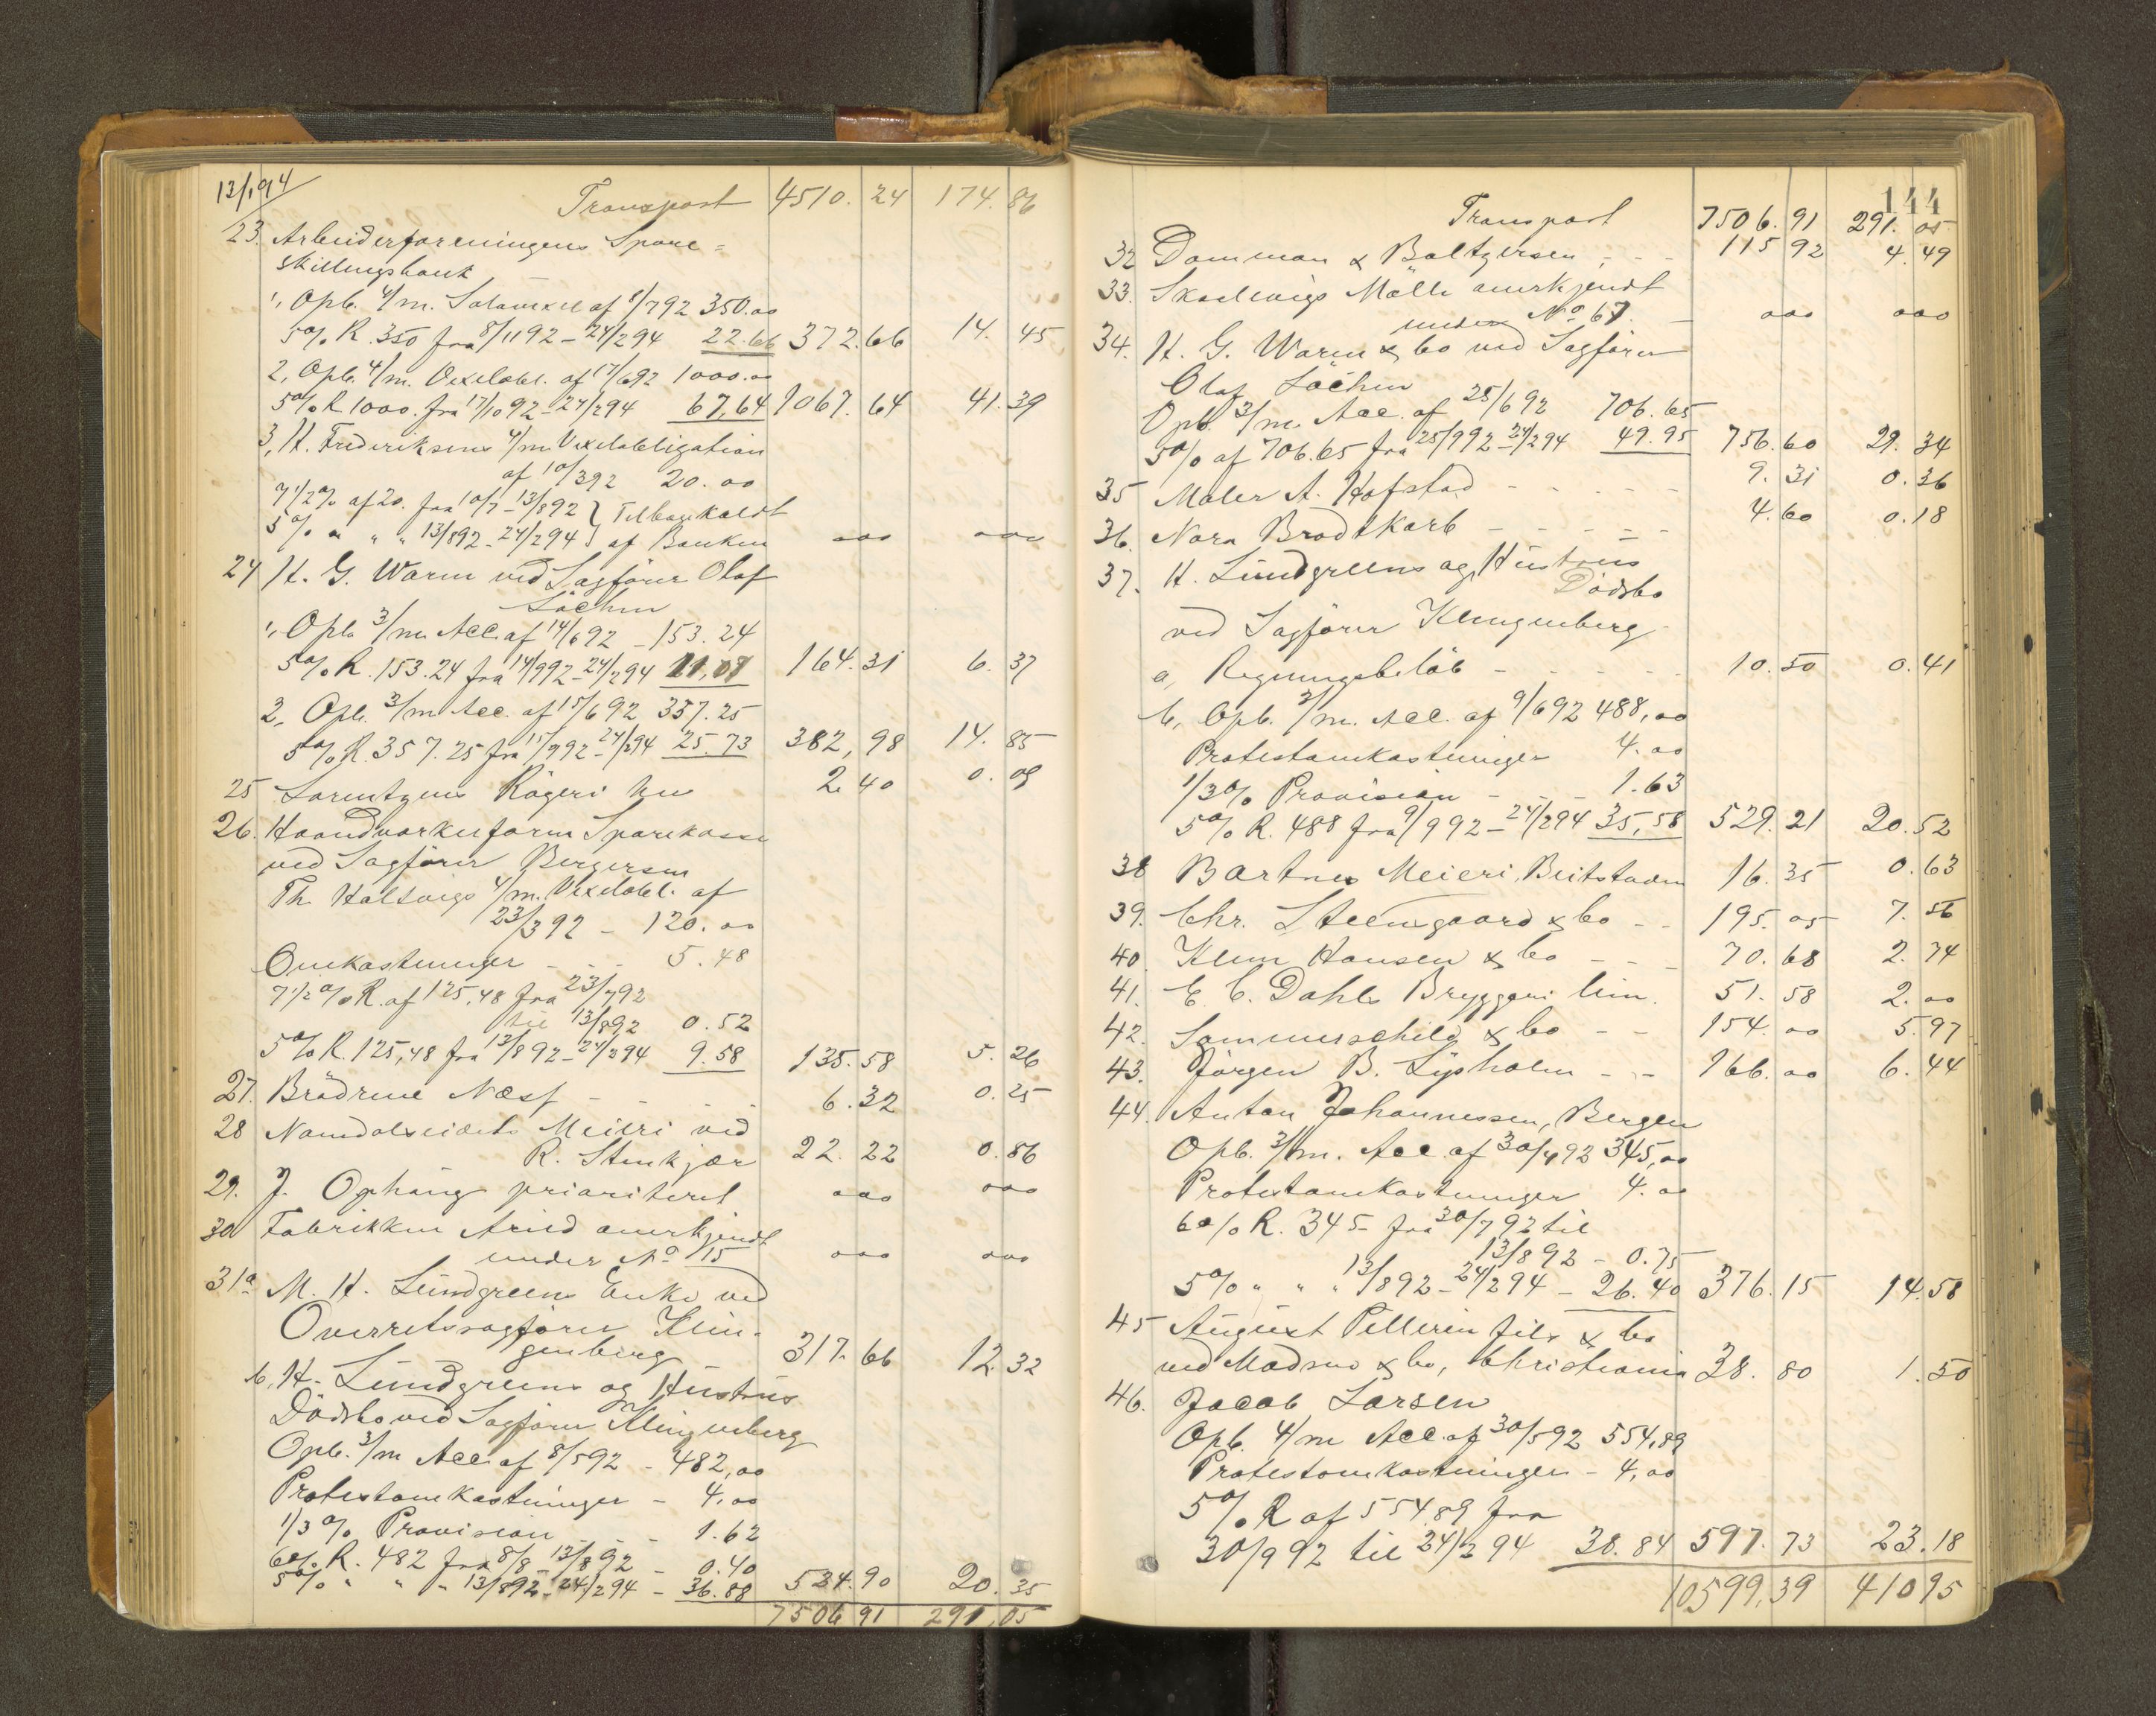 13/1 94
Transport 4510. 24 174. 86
23. Arbeiderforeningens Spare=
skillingsbank
1, Opb. 4/m. Solavexel af 8/7 92 350.00
5% R. 350 fra 8/11 92 - 24/2 94 22.66 372.66 14. 45
2, Opb. 4/m. Vexelobl. af 17/6 92 1000.00
5% R. 1000. fra 17/10 92 - 24/2 94 67,64 1067. 64 41. 39
3, H. Frederiksens 4/m Vexelobligation
af 10/3 92 20. 00
7 1/2 % af 20. fra 10/7 - 13/8 92 } Tilbagekaldt
5 % " " " 13/8 92 - 24/2 94 } af Banken ooo ooo
24 H. G. Warm ved Sagförer Olaf
Löchen
1, Opb. 3/m Acc. af 14/6 92 - 153. 24
5% R. 153.24 fra 14/9 92 - 24/2 94 11,07 164. 31 6. 37
2, Opb. 3/m Acc. af 15/6 92 357. 25
5% R. 357. 25 fra 15/9 92 - 24/2 94 25. 73 382, 98 14. 85
25 Lorentzens Rögeri 2. 40 0. 09
26. Haandværkerforen Sparekasse
ved Sagförer Bergersen
Th. Haltvigs 4/m. Vexelobl. af
23/3 92 - 120. 00
Omkostninger - - - 5. 48
7 1/2 % R. af 125,48 fra 23/7 92
til 13/8 92 0. 52
5% R. 125,48 fra 13/8 92 - 24/2 94 9. 58 135. 58 5. 26
27. Brödrene Næss - - - - 6. 32 0. 25
28 Namdalseidets Meieri ved
R. Stenkjær 22. 22 0. 86
29. J. Ophaug prioriteret ooo ooo
30 Fabrikken Arild anerkjendt
under No 15 ooo ooo
31a M. H. Lundgreens Enke ved
Overretssagförer Klin-
genberg 317. 66 12. 32
b, H. Lundgreens og Hustrus
Dödsbo ved Sagförer Klingenberg
Opb. 3/m Acc. af 8/5 92 - 482,00
Protestomkostninger - 4,00
1/3 % Provision - - - 1. 62
6% R. 482 fra 8/8 - 13/8 92 - 0. 40
5% " " " 13/8 92 - 24/2 94 - 36. 88 524. 90 20. 35
7506 91 291, 05
144
Transport 7506. 91 291. 05
32 Damman & Baltzersen, - - 115 92 4. 49
33. Skadevigs Mölle anerkjendt
under No 67. - ooo ooo
34. H. G. Warm & Co ved Sagförer
Olaf Löchen
Opb. 3/m. Acc. af 25/6 92 706. 65
5% af 706.65 fra 25/9 92 - 24/2 94 49. 95 756. 60 29. 34
35 Maler A. Hofstad - - - - - 9. 31 0. 36
36. Nora Brodtkorb - - - - - 4. 60 0. 18
37. H. Lundgreens og Hustrus
Dödsbo
ved Sagförer Klingenberg
a, Regningsbelöb - - - - - 10. 50 0. 41
b, Opb. 3/m. Acc. af 9/6 92 488,00
Protestomkostninger 4. 00
1/3 % Provision - - - 1. 63
5% R. 488 fra 9/9 92 - 24/2 94 35,58 529. 21 20. 52
38 Bartnes Meieri, Beitstaden 16. 35 0. 63
39. Chr. Steengaard & Co - - 195. 05 7. 56
40 Klem Hansen & Co - - - 70. 68 2. 74
41. E. C. Dahls Bryggeri 51. 58 2. 00
42. Sommerschild & Co - - 154. 00 5. 97
43. Jörgen B. Lysholm - - 166. 00 6. 44
44. Anton Johannessen, Bergen
Opb. 3/m. Acc. af 30/4 92 345,00
Protestomkostninger 4. 00
6% R. 345 fra 30/7 92 til
13/8 92 - 0. 75
5% " " " 13/8 92 - 24/2 94 - 26. 40 376. 15 14. 58
45 August Pellerin fils & Co
ved Madsen & Co, Christiania 38. 80 1. 50
46. Jacob Larsen
Opb. 4/m Acc. af 30/5 92 554,89
Protestomkostninger - 4,00
5% R af 554 89 fra
30/9 92 til 24/2 94 38. 84 597. 73 23. 18
10599,39 410 95